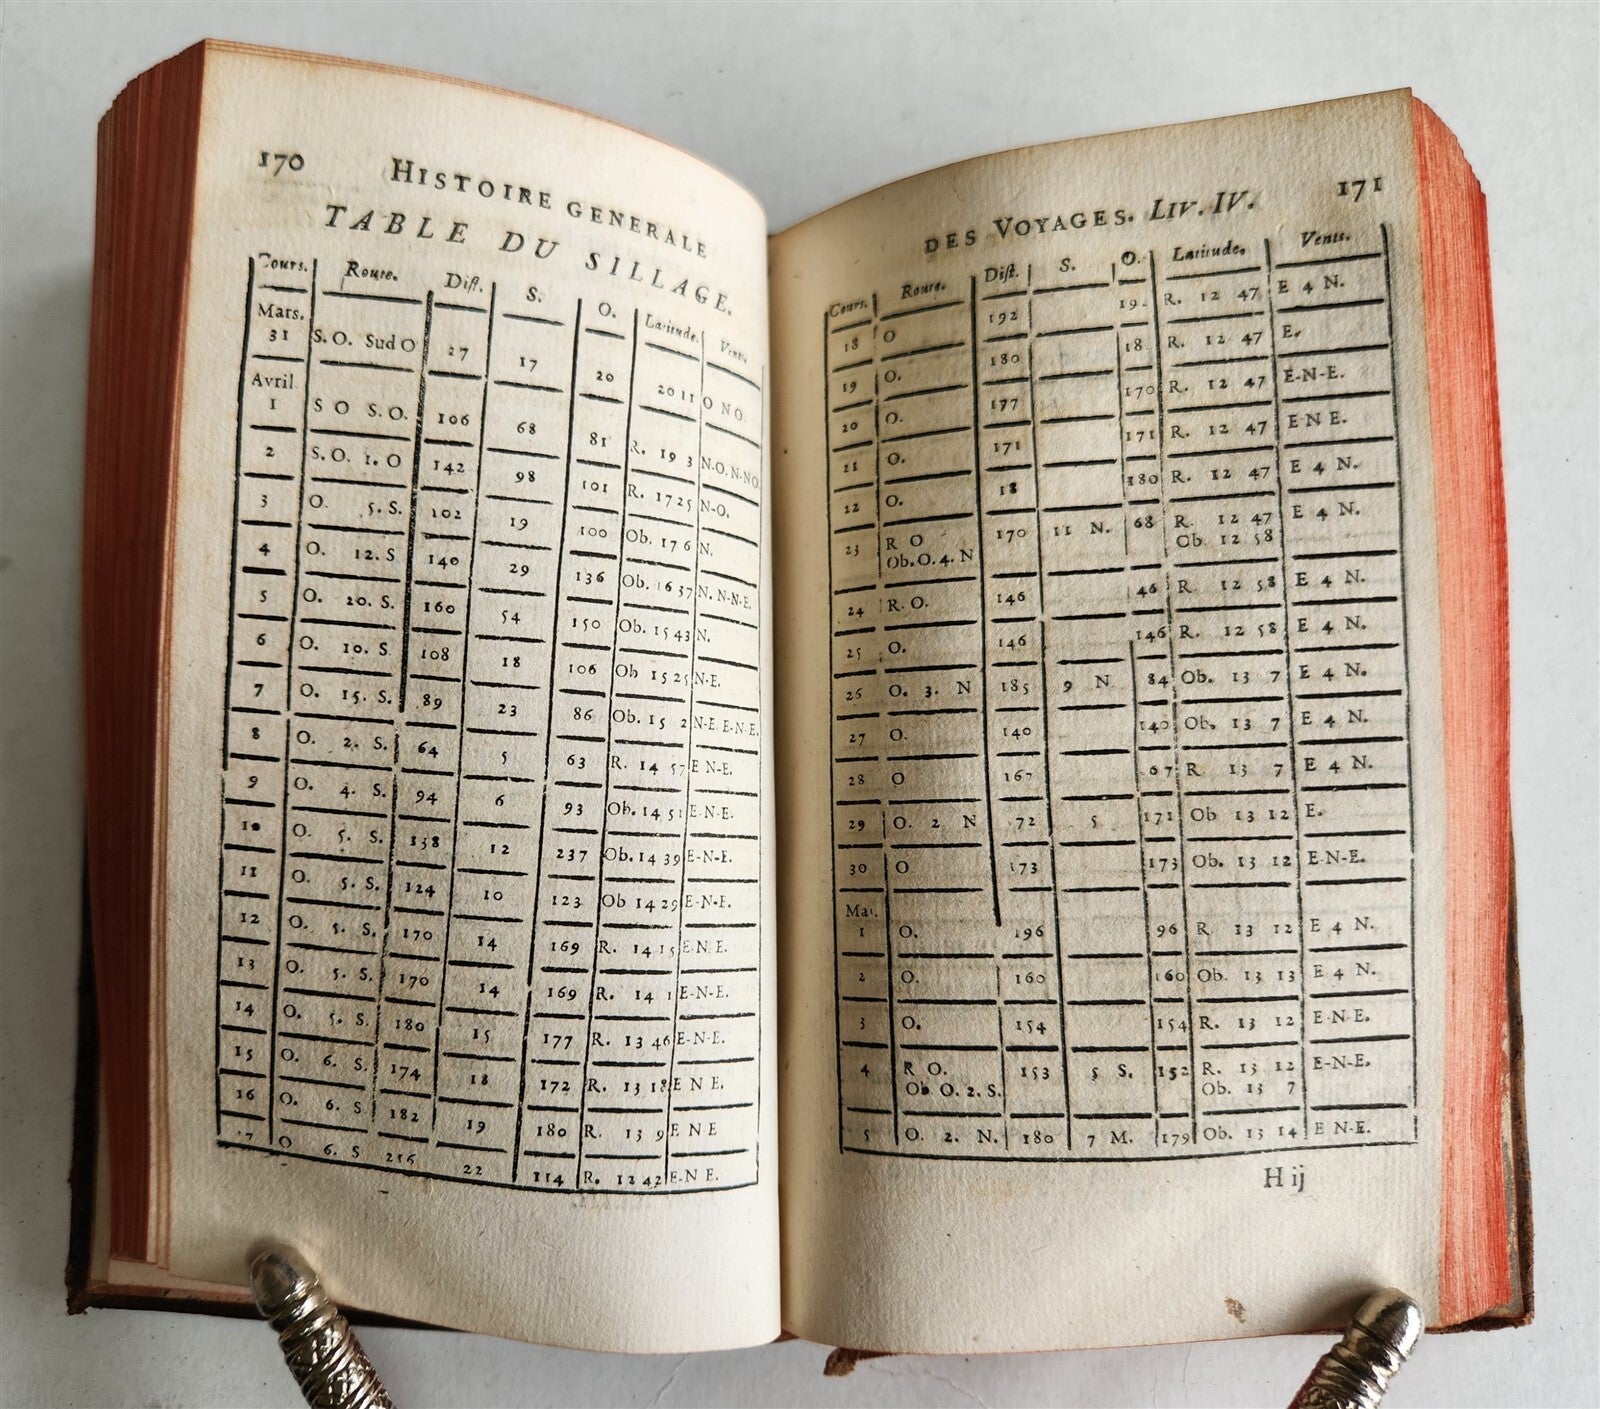 170 HISTOIRE GENERALE
TABLE DU SILLAGE.
Cours. Route. Dist. S. O. Latitude. Vents.
Mars.
31 S. O. Sud O 27 17 20 20 11 O N O.
Avril
1 S O S. O. 106 68 81 R. 19 3 N.O. N-NO.
2 S. O. 1. O 142 98 101 R. 17 25 N-O.
3 O. 5. S. 102 19 100 Ob. 17 6 N.
4 O. 12. S 140 29 136 Ob. 16 37 N. N-N-E.
5 O. 20. S. 160 54 150 Ob. 15 43 N.
6 O. 10. S 108 18 106 Ob 15 25 N-E.
7 O. 15. S. 89 23 86 Ob. 15 2 N-E. E-N-E.
8 O. 2. S. 64 5 63 R. 14 57 E N-E.
9 O. 4. S. 94 6 93 Ob. 14 51 E-N-E.
10 O. 5. S. 138 12 237 Ob. 14 39 E-N-E.
11 O. 5. S. 124 10 123 Ob 14 29 E-N-E.
12 O. 5. S. 170 14 169 R. 14 15 E-N E.
13 O. 5. S. 170 14 169 R. 14 1 E-N-E.
14 O. 5. S. 180 15 177 R. 13 46 E-N-E.
15 O. 6. S. 174 18 172 R. 13 18 E N E.
16 O. 6. S 182 19 180 R. 13 9 E N E
17 O 6. S 216 22 114 R. 12 42 E-N E.
DES VOYAGES. LIV. IV. 171
Cours. Route. Dist. S. O. Latitude. Vents.
18 O 192 19 R. 12 47 E 4 N.
19 O. 180 18 R. 12 47 E.
20 O. 177 170 R. 12 47 E-N-E.
21 O. 171 171 R. 12 47 E N E.
12 O. 18 180 R. 12 47 E 4 N.
23 R O 170 11 N. 68 R. 12 47 E 4 N.
Ob. O. 4. N Ob. 12 58
24 R. O. 146 46 R. 12 58 E 4 N.
25 O. 146 146 R. 12 58 E 4 N.
26 O. 3. N 185 9 N 84 Ob. 13 7 E 4 N.
27 O. 140 140 Ob. 13 7 E 4 N.
28 O 167 67 R 13 7 E 4 N.
29 O. 2 N 72 5 171 Ob 13 12 E.
30 O 173 173 Ob. 13 12 E-N-E.
Mai.
1 O. 196 96 R 13 12 E 4 N.
2 O. 160 160 Ob. 13 13 E 4 N.
3 O. 154 154 R. 13 12 E-N E.
4 R O. 153 5 S. 152 R. 13 12 E-N-E.
Ob O. 2. S. Ob. 13 7
5 O. 2. N. 180 7 M. 179 Ob. 13 14 E N-E.
H ij